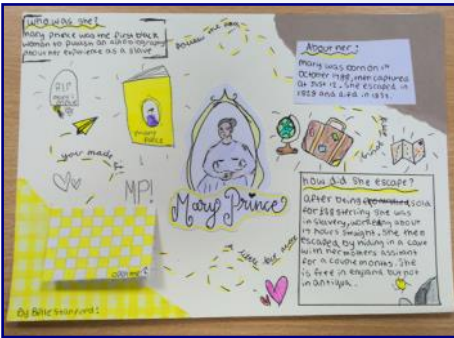 who was she?
mary prince was the first black
woman to publish an autobiography
about her experience as a slave
follow the way
About her:
mary was born on 1st
october 1788, then captured
at just 12. She escaped in
1828 and died in 1833.
RIP
mary
prince
mary
prince
you made it!
MP!
Mary Prince
your
a little bit more
how did she escape?
after being sold
for £38 sterling she was
in slavery, working about
17 hours straight. She then
escaped by hiding in a cave
with her mothers assistant
for a couple months. She
is free in england but not
in antigua.
open me!
By Billie Stanyard: